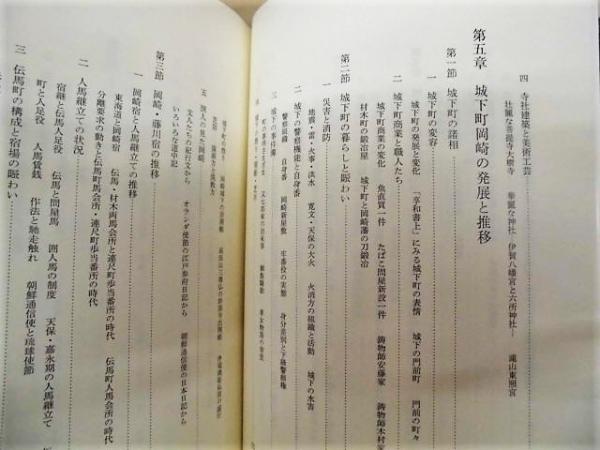 四 寺社建築と美術工芸
壮麗な菩提寺大樹寺 華麗な神社 伊賀八幡宮と六所神社 滝山東照宮
第五章 城下町岡崎の発展と推移
第一節 城下町の諸相
一 城下町の変容
城下町の発展と変化 「享和書上」にみる城下町の表情 城下の門前町 門前の町々
二 城下町商業と職人たち
城下町商業の変化 魚直買一件 たばこ問屋新設一件 鋳物師安藤家 鋳物師木村家
材木町の鍛冶屋 城下町と岡崎藩の刀鍛冶
第二節 城下町の暮らしと賑わい
一 災害と消防
地震・雷・火事・洪水 寛文・天保の大火 火消方の組織と活動 城下の水害
二 城下の警察機能と自身番
警察組織 自身番 岡崎新屋敷 牢番役の実態 身分差別と下級警察権
三 城下の事件簿
五 旅人の見た岡崎
文人たちの紀行文から オランダ使節の江戸参府日記から 朝鮮通信使の日本日記から
いろいろな道中記
第三節 岡崎・藤川宿の推移
一 岡崎宿と人馬継立ての推移
東海道と岡崎宿 伝馬・材木両馬会所と連尺町歩当番所の時代 伝馬町人馬会所の時代
分離要求の動きと伝馬町馬会所・連尺町歩当番所の時代
二 人馬継立ての状況
宿継と伝馬人足役 伝馬と問屋馬 囲人馬の制度 天保・嘉永期の人馬継立て
町と人足役 人馬賃銭 作法と馳走触れ 朝鮮通信使と琉球使節
三 伝馬町の構成と宿場の賑わい